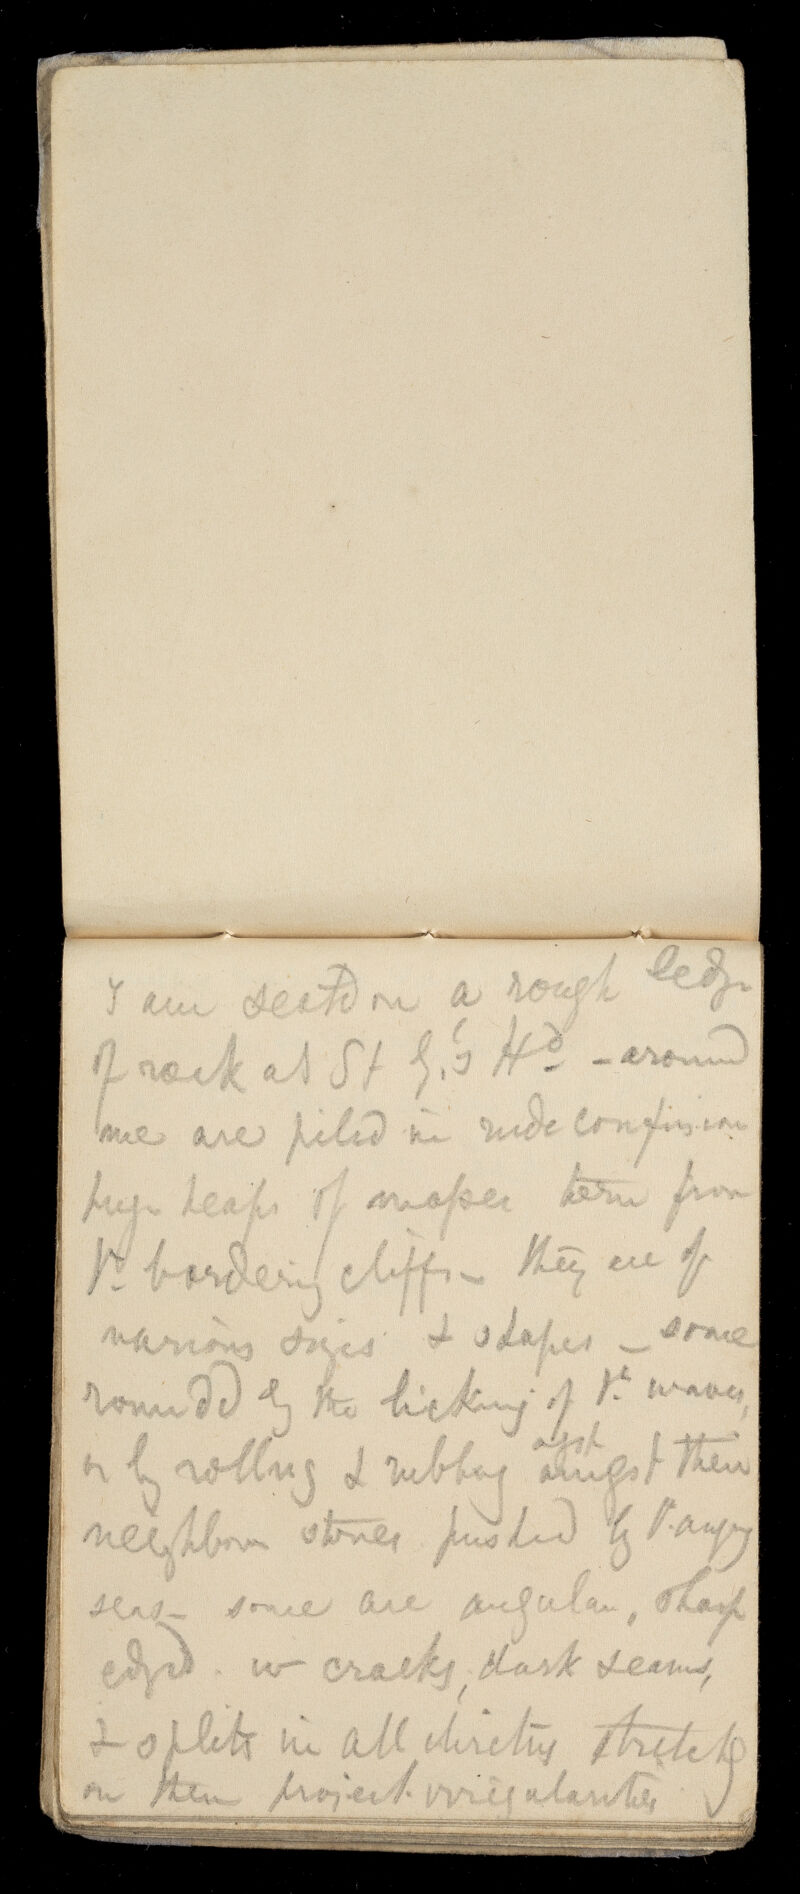 I am seatd on a rough ledge
of rock at St G.'s Hd – around
me are piled in rude confusion
huge heaps of masses torn from
ye bordering cliffs – they are of
various sizes & shapes – some
roundd by the licking of ye waves,
or by rolling & rubbing agst amgst their
neighbour stones pushed by ye angry
seas – some are angular, sharp
edged. w cracks, dark seams,
& splits in all directns stretchg
on them project irregularities